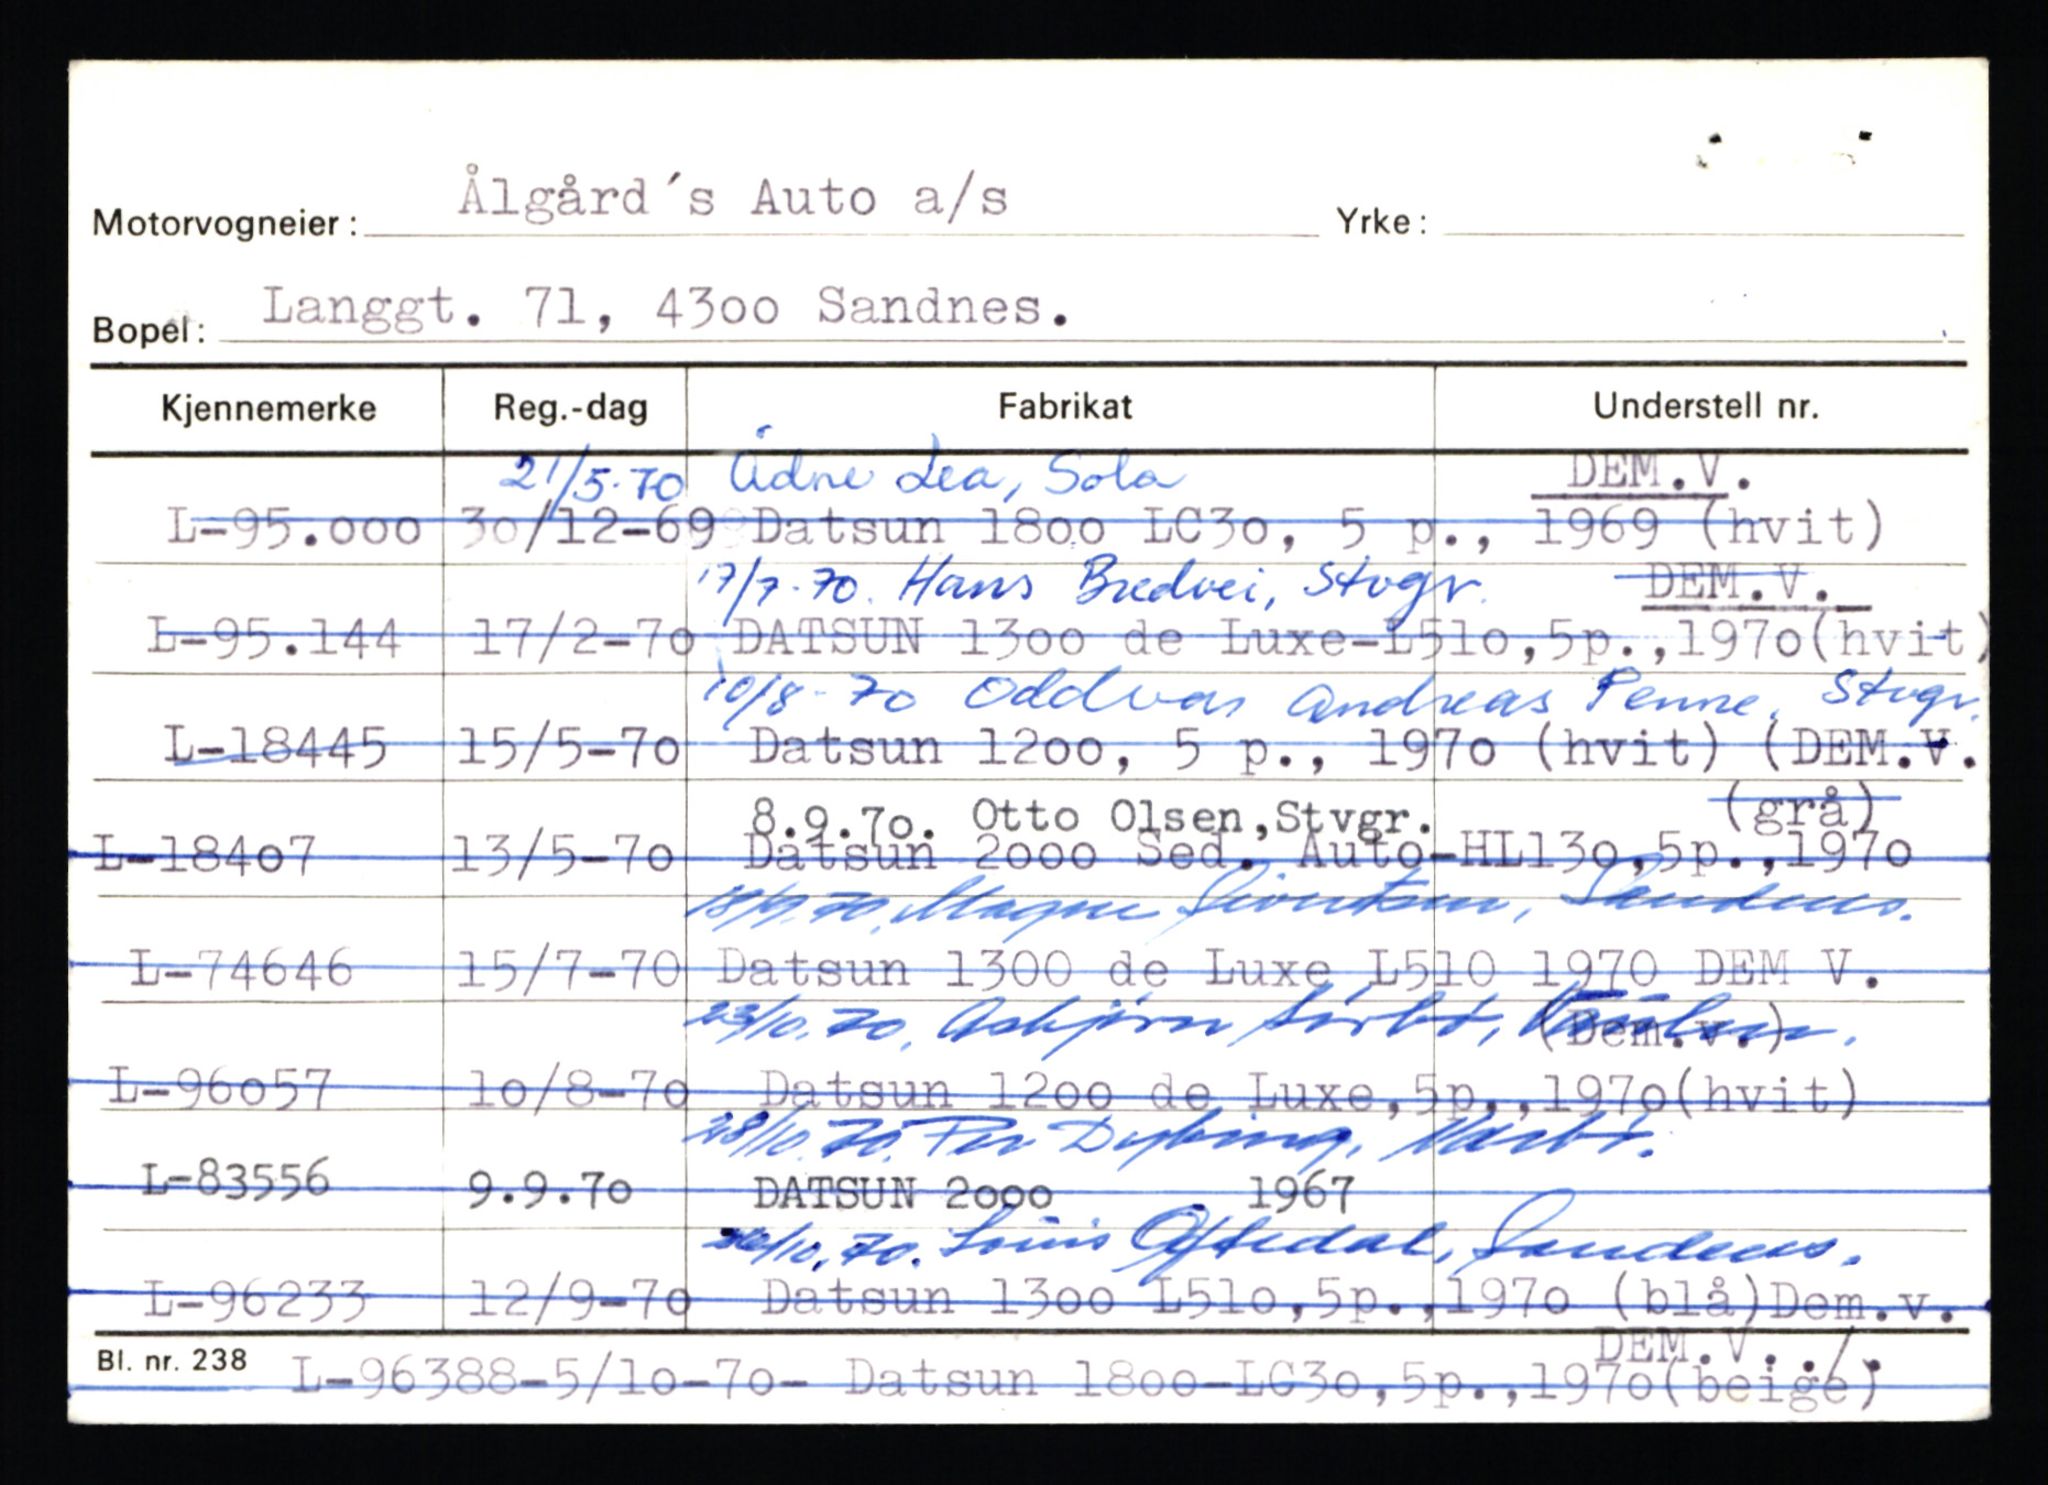 Motorvogneier: Ålgård´s Auto a/s Yrke:
Bopel: Langgt. 71, 43oo Sandnes.
Kjennemerke Reg.-dag Fabrikat Understell nr.
21/5-70 Ådne Lea, Sola DEM.V.
L-95.ooo 3o/12-69 Datsun 18oo LC3o, 5 p., 1969 (hvit)
17/7-70. Hans Bredvei, Stvgr. DEM.V.
L-95.144 17/2-7o DATSUN 13oo de Luxe-L51o,5p.,197o(hvit)
10/8-70 Oddvar Andreas Penne, Stvgr.
L-18445 15/5-7o Datsun 12oo, 5 p., 197o (hvit) (DEM.V.
8.9.7o. Otto Olsen,Stvgr. (grå)
L-184o7 13/5-7o Datsun 2ooo Sed. Auto-HL13o,5p.,197o
70. Magne Sivertsen, Sandnes.
L-74646 15/7-70 Datsun 1300 de Luxe L510 1970 DEM V.
23/10.70. Asbjørn (Dem.v.)
L-96o57 1o/8-7o Datsun 12oo de Luxe,5p.,197o(hvit)
28/10.70. Per Dybing, Nærbø.
L-83556 9.9.7o DATSUN 2ooo 1967
/10.70. Louis Oftedal, Sandnes.
L-96233 12/9-7o Datsun 13oo L51o,5p.,197o (blå)Dem.v.
DEM.V../.
Bl. nr. 238 L-96388-5/1o-7o- Datsun 18oo-LC3o,5p.,197o(beige)